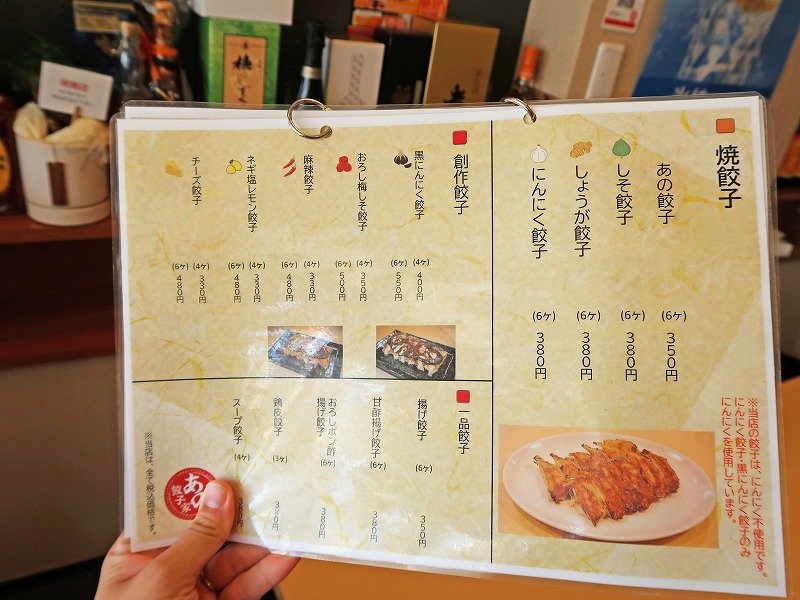 焼餃子
あの餃子
(6ケ) 350円
しそ餃子
(6ケ) 380円
しょうが餃子
(6ケ) 380円
にんにく餃子
(6ケ) 380円
※当店の餃子は、にんにく不使用です。
にんにく餃子・黒にんにく餃子のみ
にんにくを使用しています。
創作餃子
黒にんにく餃子
(4ケ) 400円
(6ケ) 550円
おろし梅しそ餃子
(4ケ) 350円
(6ケ) 500円
麻辣餃子
(4ケ) 330円
(6ケ) 480円
ネギ塩レモン餃子
(4ケ) 330円
(6ケ) 480円
チーズ餃子
(4ケ) 330円
(6ケ) 480円
一品餃子
揚げ餃子
(6ケ) 350円
甘酢揚げ餃子
(6ケ) 380円
おろしポン酢
揚げ餃子
(6ケ) 380円
鶏皮餃子
(3ケ) 380円
スープ餃子
(4ケ) 380円
※当店は、全て税込価格です。
あの
餃子家